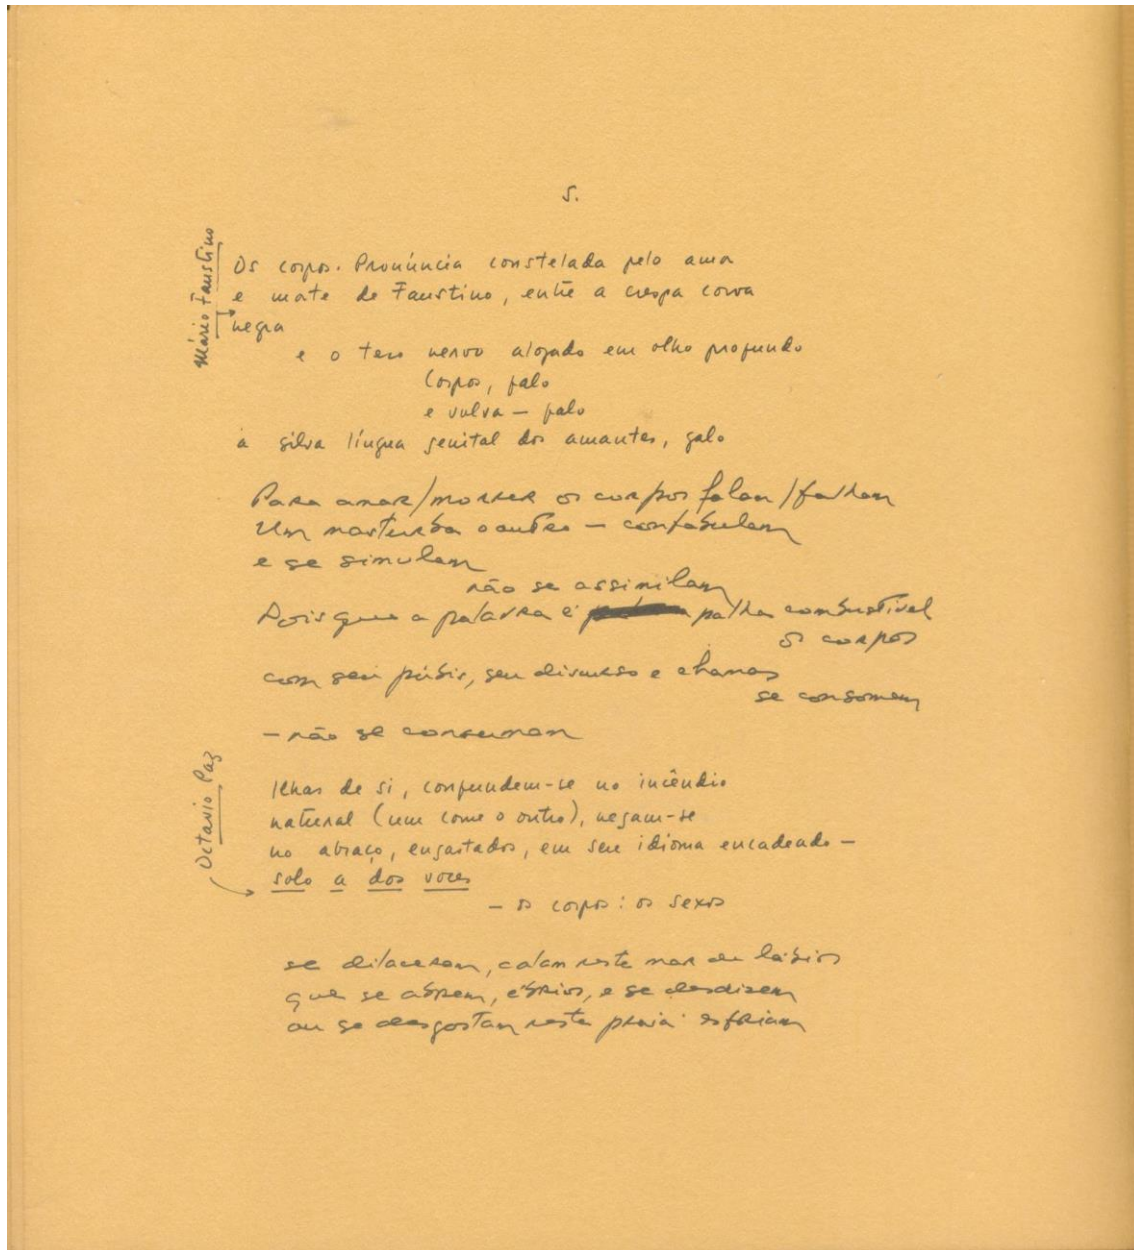 5.
Mário Faustino
Os corpos. Pronúncia constelada pelo amor
e morte de Faustino, entre a crespa corva
negra
e o teso nervo alojado em olho profundo
Corpos, falo
e vulva — falo
a silva língua genital dos amantes, galo
Para amar/morrer os corpos falam/falham
Um masturba o outro — confabulam
e se simulam
não se assimilam
Pois que a palavra é palha combustível
os corpos
com seu púbis, seu discurso e chamas
se consomem
— não se consumam
Octavio Paz
Ilhas de si, confundem-se no incêndio
natural (um come o outro), negam-se
no abraço, engastados, em seu idioma encadeado —
solo a dos voces
— os corpos: os sexos
se dilaceram, calam neste mar de lábios
que se abrem, ébrios, e se desdizem
ou se desgostam nesta praia: esfriam